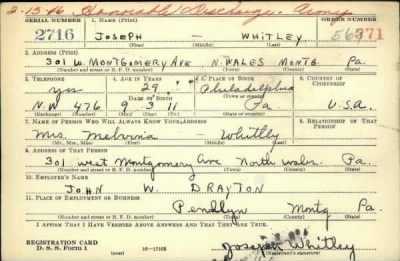 2-13-46 Honorable Discharge. Army
SERIAL NUMBER 1. NAME (Print) ORDER NUMBER
2716 JOSEPH — WHITLEY 571
(First) (Middle) (Last)
2. ADDRESS (Print)
301 W. MONTGOMERY AVE N. WALES MONTG Pa.
(Number and street or R. F. D. number) (Town) (County) (State)
3. TELEPHONE 4. AGE IN YEARS 5. PLACE OF BIRTH 6. COUNTRY OF CITIZENSHIP
yes 29 Philadelphia
DATE OF BIRTH (Town or county)
N.W 476 9 3 11 Pa U.S.A.
(Exchange) (Number) (Mo.) (Day) (Yr.) (State or country)
7. NAME OF PERSON WHO WILL ALWAYS KNOW YOUR ADDRESS 8. RELATIONSHIP OF THAT PERSON
Mrs. — Whitley
(Mr., Mrs., Miss) (First) (Middle) (Last)
9. ADDRESS OF THAT PERSON
301 west Montgomery Ave North Wales. Pa.
(Number and street or R. F. D. number) (Town) (County) (State)
10. EMPLOYER'S NAME
JOHN W. DRAYTON
11. PLACE OF EMPLOYMENT OR BUSINESS
Penllyn Montg Pa.
(Number and street or R. F. D. number) (Town) (County) (State)
I AFFIRM THAT I HAVE VERIFIED ABOVE ANSWERS AND THAT THEY ARE TRUE.
REGISTRATION CARD
D. S. S. Form 1 16—17105 Joseph Whitley